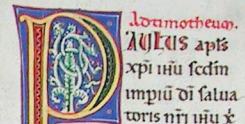 Ad timotheum.
PAULUS apłs
xp̄i ih̄u scd̄m
imp̄iū dī salua
toris nr̄i ih̄u x̄